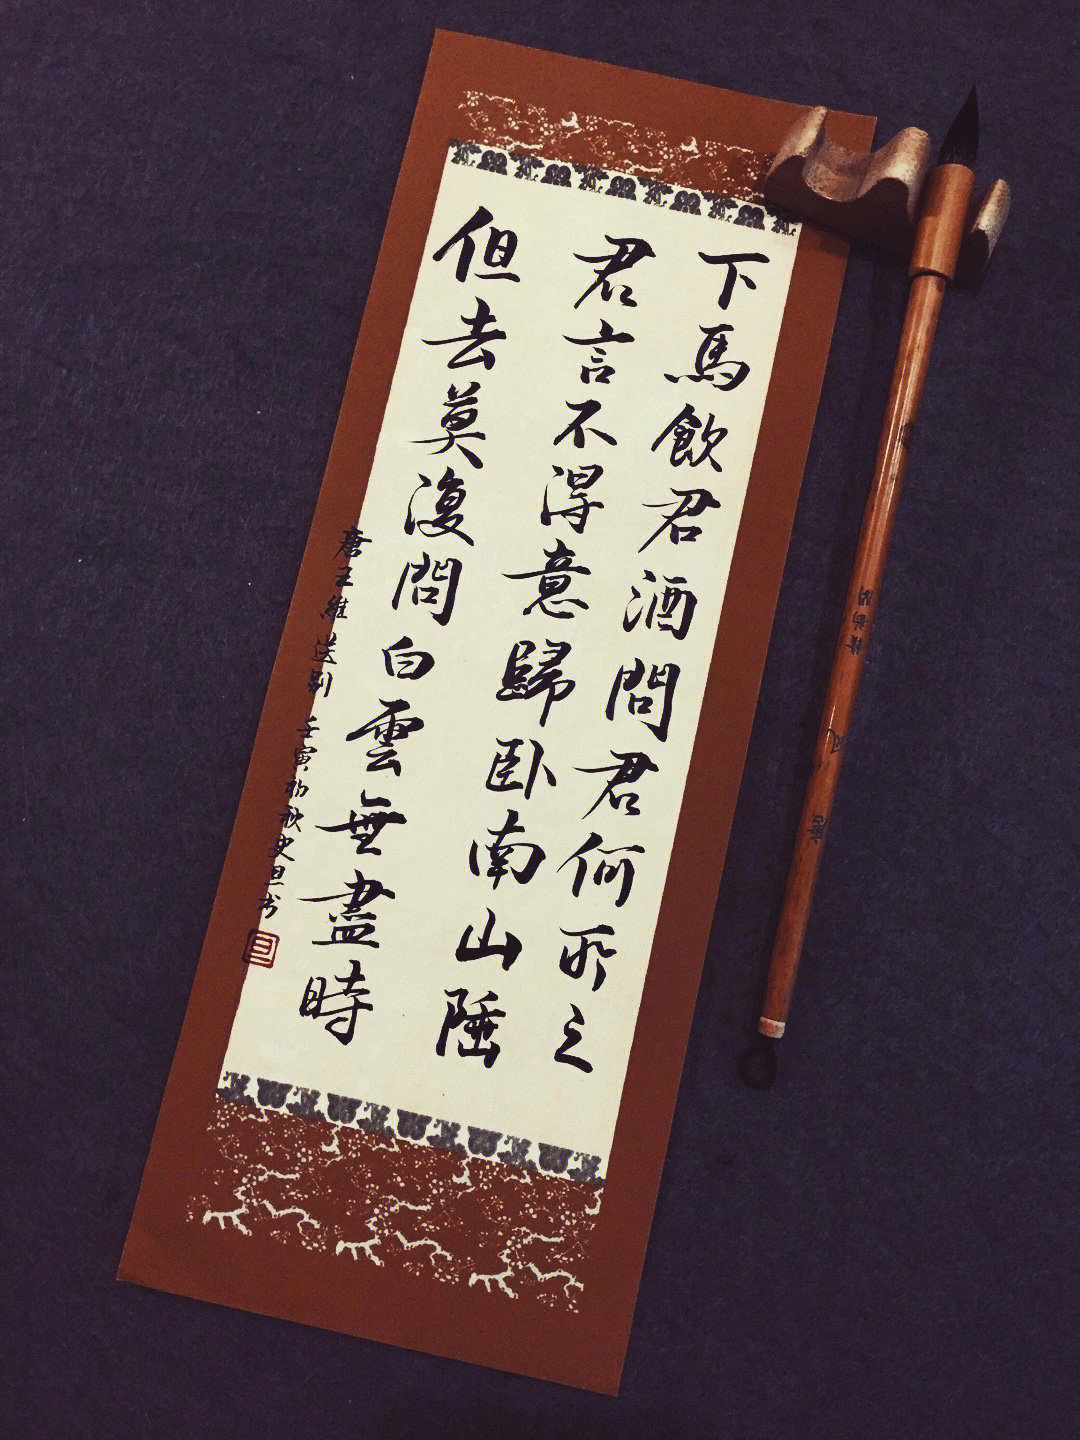 下馬飲君酒問君何所之
君言不得意歸卧南山陲
但去莫復問白雲無盡時
唐王維送别 壬寅初秋史旦书
旦